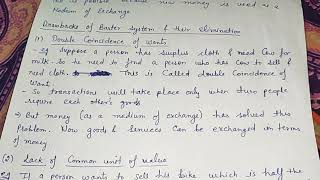 is possible because now money is used as a
Medium of Exchange
Drawbacks of Barter System & their Elimination
(1) Double Coincidence of Wants
Eg Suppose a person has surplus cloth & need Cow for
milk. So he need to find a person who has Cow to sell &
need cloth. This is Called double Coincidence of
Want.
- So transactions will take place only when two people
require each other's goods
⇒ But money (as a medium of exchange) has solved this
Problem. Now goods & services Can be exchanged in terms
of money
(2) Lack of Common unit of value
Eg If a person wants to sell his bike which is half the